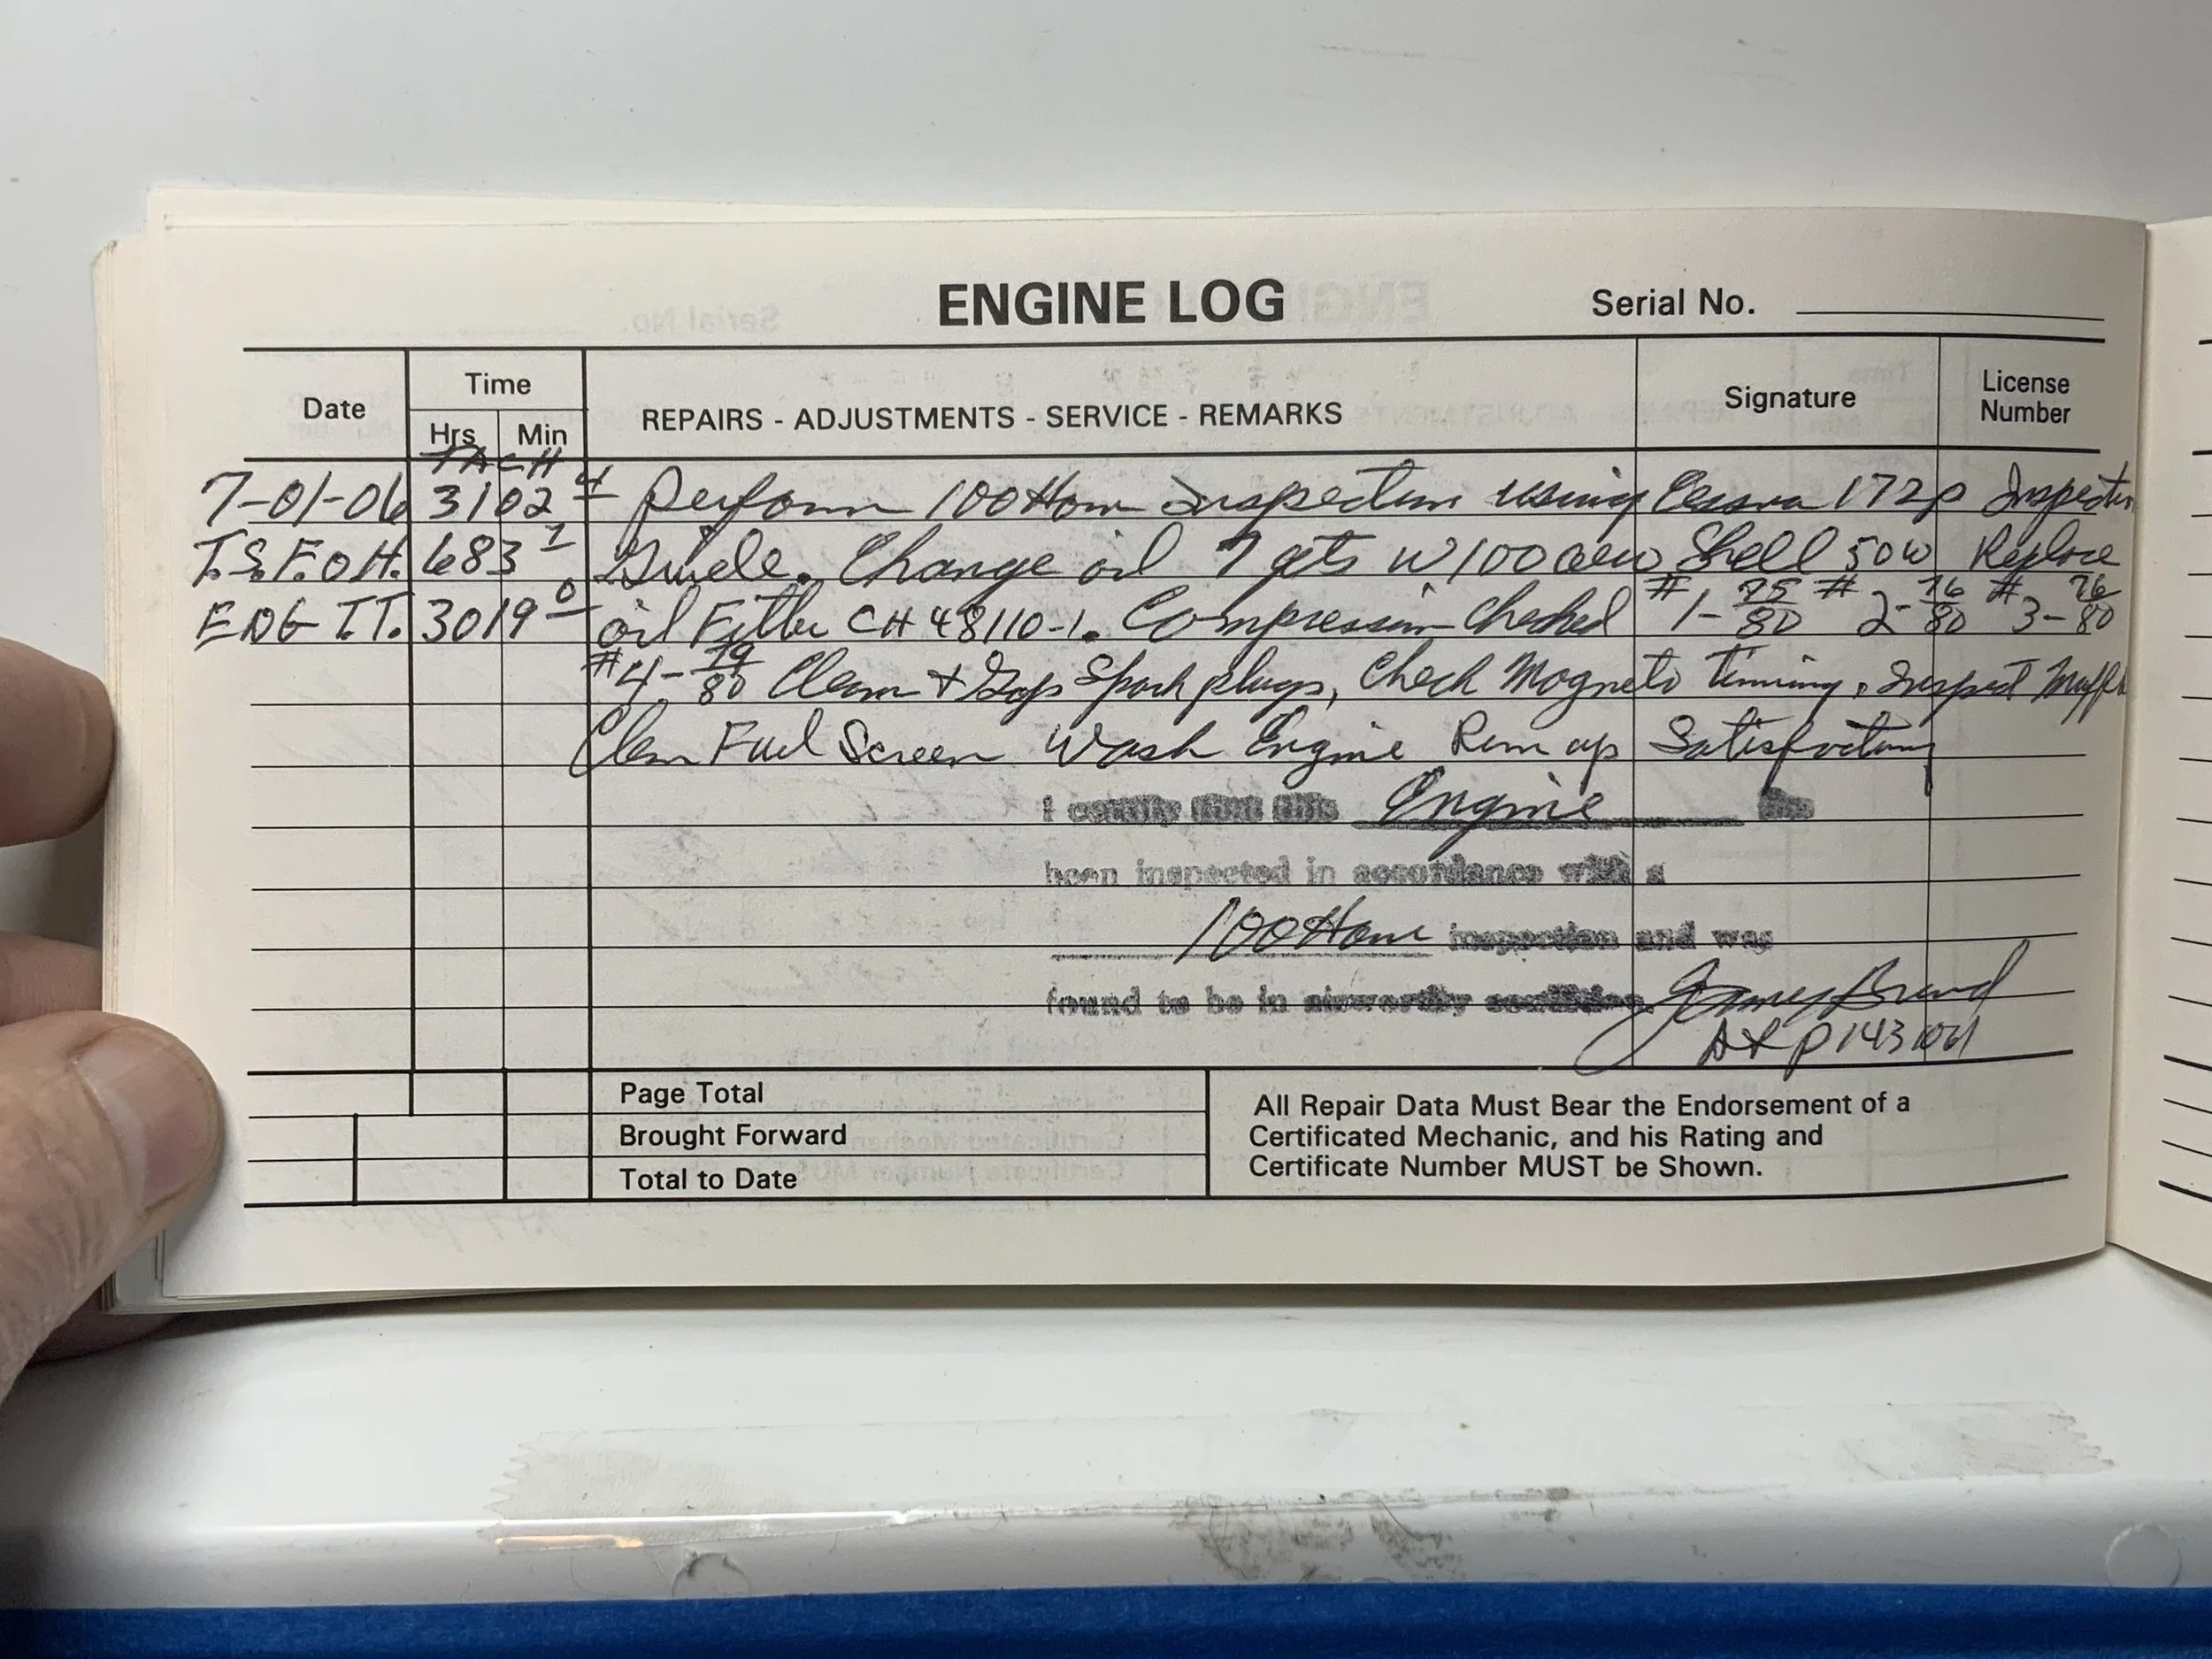 ENGINE LOG Serial No.
Date Time REPAIRS - ADJUSTMENTS - SERVICE - REMARKS Signature License Number
Hrs Min
TACH
7-01-06 3102 4 Perform 100 Hour Inspection using Cessna 172p Inspection
T.S.F.O.H. 683 1 Guide. Change oil 7 qts W100 Shell 50w Replace
ENG T.T. 3019 0 oil Filter CH 48110-1. Compression Checked #1- 75/80 #2- 76/80 #3- 76/80
#4- 79/80 Clean & Gap Spark plugs, Check Magneto Timing, Inspect
Clean Fuel Screen Wash Engine Run up Satisfactory
I certify that this Engine has
been inspected in accordance with a
100 Hour inspection and was
found to be in airworthy condition
A&P
Page Total
Brought Forward
Total to Date
All Repair Data Must Bear the Endorsement of a
Certificated Mechanic, and his Rating and
Certificate Number MUST be Shown.